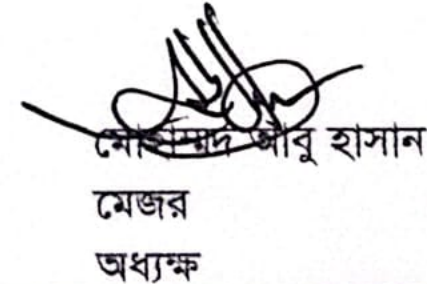 মোহাম্মদ আবু হাসান
মেজর
অধ্যক্ষ